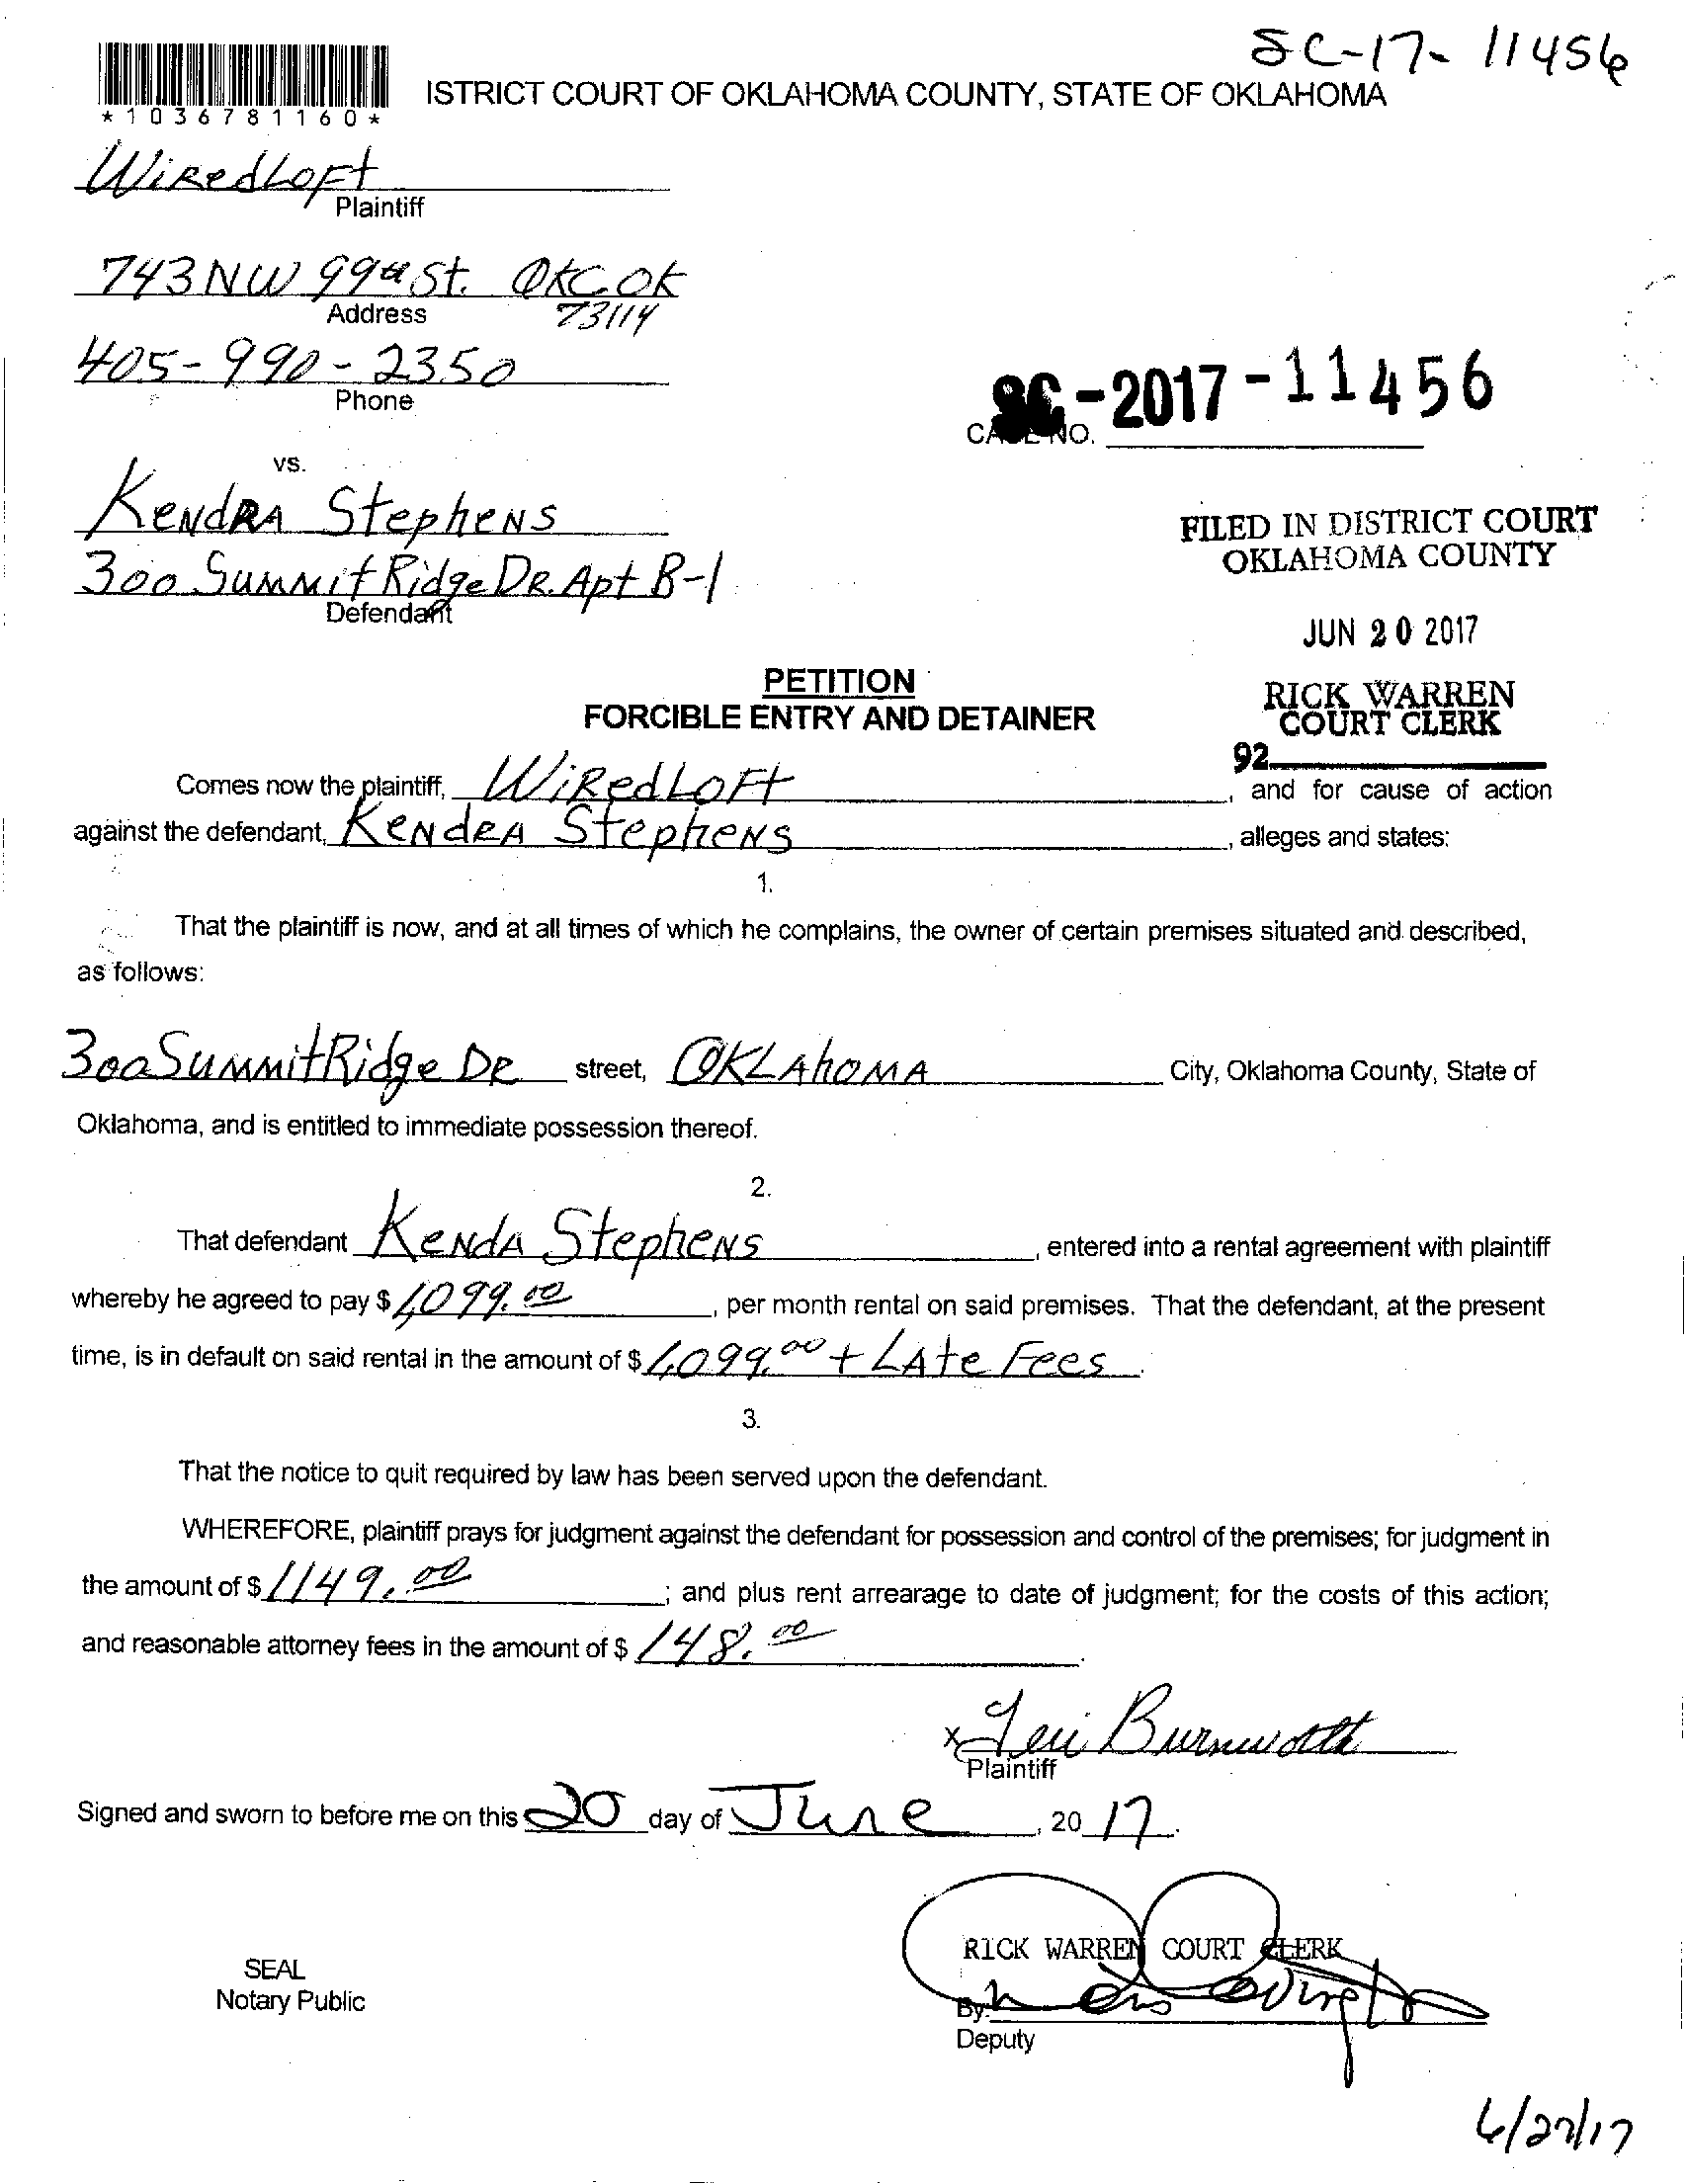 SC-17-11456
ISTRICT COURT OF OKLAHOMA COUNTY, STATE OF OKLAHOMA
*1036781160*
WiredLoft
Plaintiff
743 NW 99th St. OKC OK
Address 73114
405-990-2350
Phone
SC-2017-11456
CASE NO.
vs.
Kendra Stephens
300 Summit Ridge Dr. Apt B-1
Defendant
FILED IN DISTRICT COURT
OKLAHOMA COUNTY
JUN 20 2017
RICK WARREN
COURT CLERK
92
PETITION
FORCIBLE ENTRY AND DETAINER
Comes now the plaintiff, WiredLoft, and for cause of action
against the defendant, Kendra Stephens, alleges and states:
1.
That the plaintiff is now, and at all times of which he complains, the owner of certain premises situated and described,
as follows:
300 Summit Ridge Dr street, Oklahoma City, Oklahoma County, State of
Oklahoma, and is entitled to immediate possession thereof.
2.
That defendant Kenda Stephens, entered into a rental agreement with plaintiff
whereby he agreed to pay $ 1,099.00, per month rental on said premises. That the defendant, at the present
time, is in default on said rental in the amount of $ 1,099.00 + Late Fees.
3.
That the notice to quit required by law has been served upon the defendant.
WHEREFORE, plaintiff prays for judgment against the defendant for possession and control of the premises; for judgment in
the amount of $ 1149.00; and plus rent arrearage to date of judgment; for the costs of this action;
and reasonable attorney fees in the amount of $ 148.00.
x Teri Burnworth
Plaintiff
Signed and sworn to before me on this 20 day of June, 20 17.
RICK WARREN COURT CLERK
SEAL
Notary Public
By:
Deputy
6/27/17